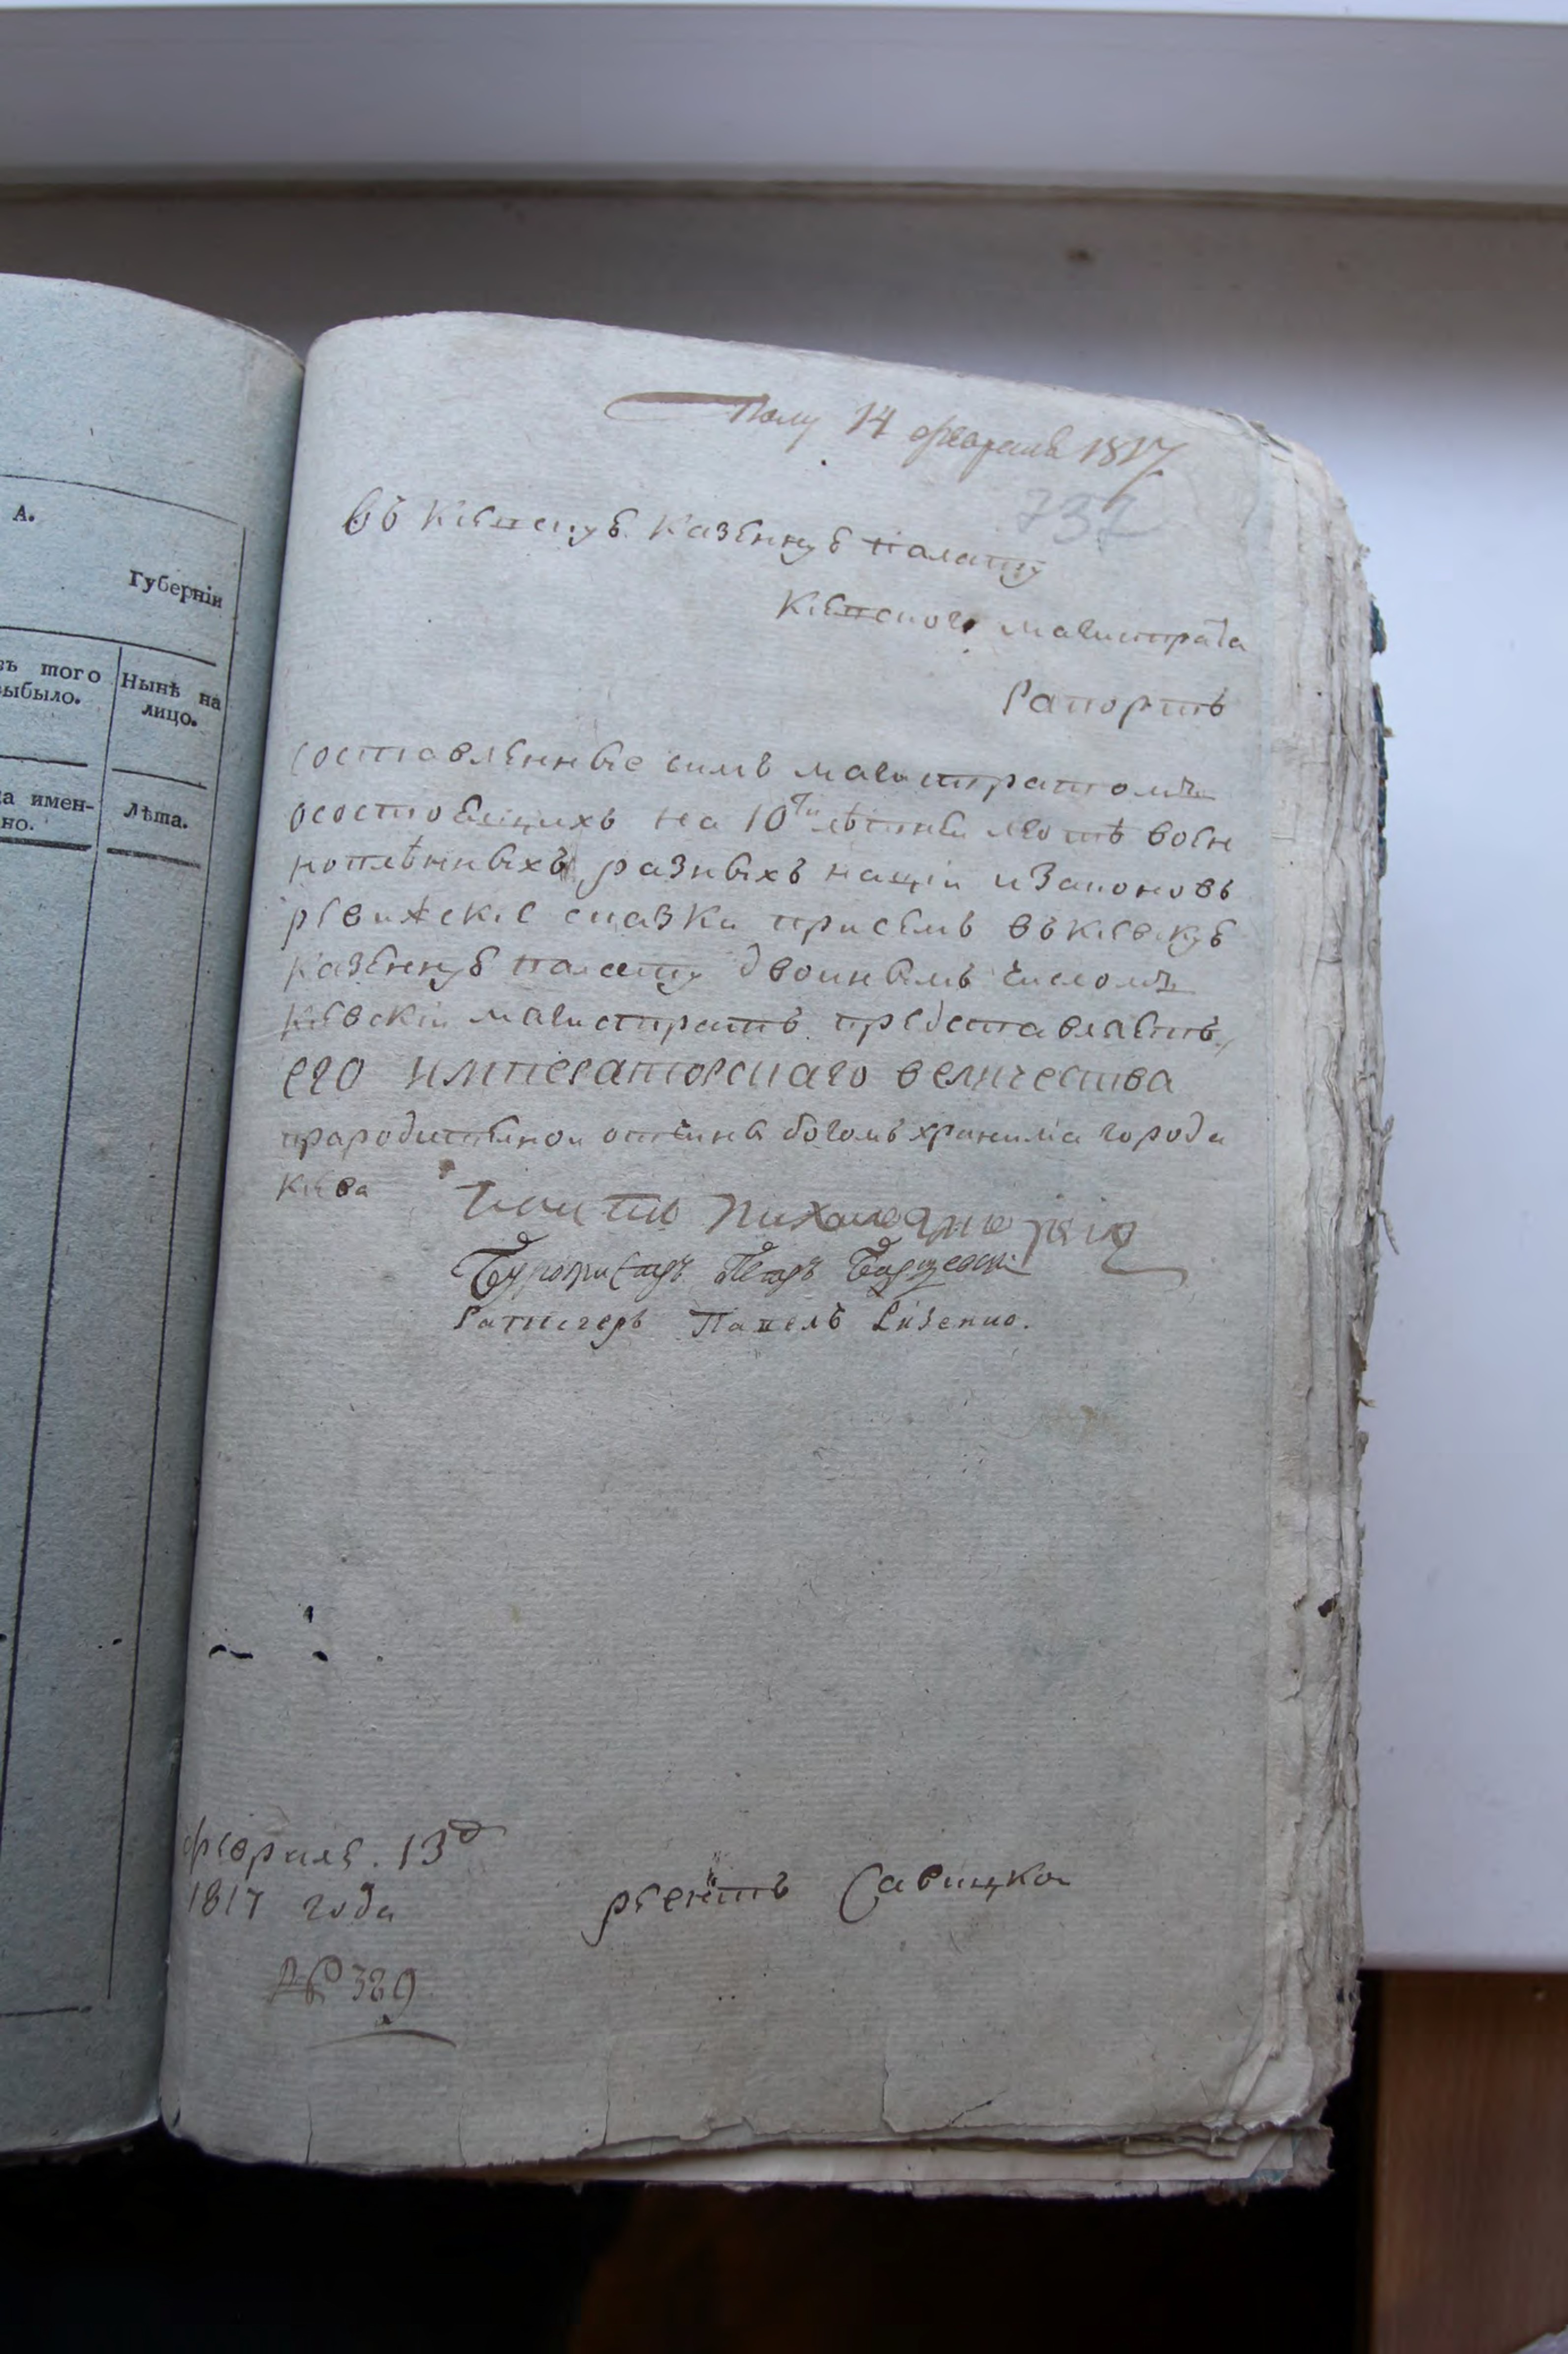 А.
Губерніи
того
выбыло.
Нынѣ на
лицо.
имен-
но.
лѣта.
Полу 14 февраля 1817
737
Въ Кіевскую Казенную палату
Кіевского магистрата
Рапортъ
составленные симъ магистратомъ
осостоящихъ на 10ти лѣтней лготѣ воен
ноплѣнныхъ разныхъ націй и Законовъ
ревижскіе сказки присемъ въ кіевскую
казенную палату двойнымъ числомъ
кіевскій магистратъ представляетъ,
его императорскаго величества
прародителной отчины богомъ хранима города
кіева
Бургомистръ Петръ Барщевскій
Ратсгеръ Павелъ Лизенко.
февраля. 13 д
1817 года
№ 389
регентъ Савицкой